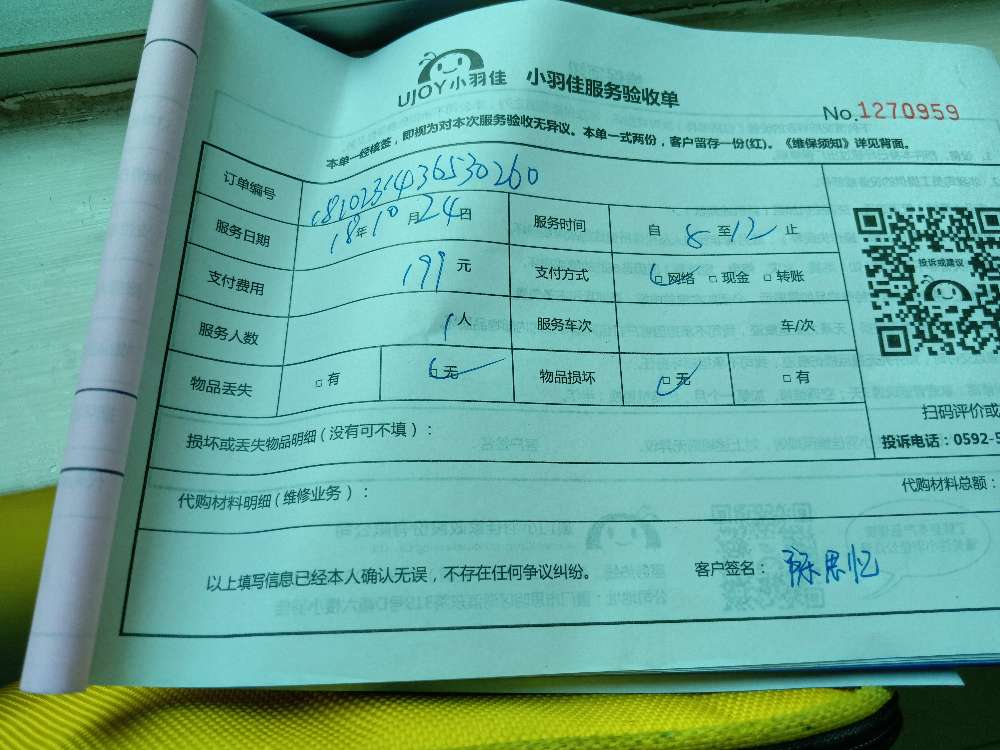 UJOY小羽佳 小羽佳服务验收单
No.1270959
本单一经核签，即视为对本次服务验收无异议。本单一式两份，客户留存一份(红)。《维保须知》详见背面。
订单编号
服务日期 18年10月24日 服务时间 自8至12止
支付费用 199元 支付方式 □网络 □现金 □转账
服务人数 1人 服务车次 车/次
物品丢失 □有 □无 物品损坏 □无 □有
投诉或建议
扫码评价或
投诉电话：0592-5
损坏或丢失物品明细(没有可不填)：
代购材料明细(维修业务)： 代购材料总额：
以上填写信息已经本人确认无误，不存在任何争议纠纷。 客户签名：